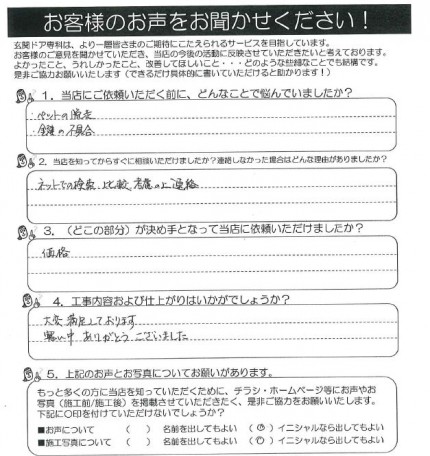 お客様のお声をお聞かせください！
玄関ドア専科は、より一層皆さまのご期待にこたえられるサービスを目指しています。
お客様のご意見を聞かせていただき、当店の今後の活動に反映させていただきたいと考えております。
よかったこと、うれしかったこと、改善してほしいこと・・・どのような些細なことでも結構です。
是非ご協力お願いいたします（できるだけ具体的に書いていただけると助かります！）
１．当店にご依頼いただく前に、どんなことで悩んでいましたか？
・ペットの脱走
・鍵の不具合
２．当店を知ってからすぐに相談いただけましたか？連絡しなかった場合はどんな理由がありましたか？
ネットでの検索、比較、考慮の上連絡
３．（どこの部分）が決め手となって当店に依頼いただけましたか？
価格
４．工事内容および仕上がりはいかがでしょうか？
大変満足しております
暑い中ありがとうございました
５．上記のお声とお写真についてお願いがあります。
もっと多くの方に当店を知っていただくために、チラシ・ホームページ等にお声やお
写真（施工前/施工後）を掲載させていただきたく、是非ご協力をお願いいたします。
下記に〇印を付けていただけないでしょうか？
■お声について （ ） 名前を出してもよい （〇） イニシャルなら出してもよい
■施工写真について （ ） 名前を出してもよい （〇） イニシャルなら出してもよい